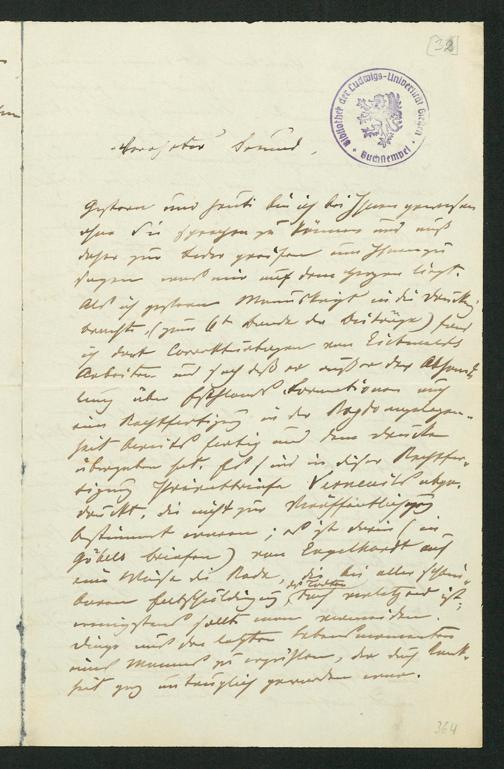 [32]
Bibliothek der Ludwigs-Universität Gießen
Buchstempel
Verehrter Freund,
Gestern und heute bin ich bei Ihnen gewesen
ohne Sie sprechen zu können und muß
daher zur Feder greifen um Ihnen zu
sagen was mir auf dem Herzen liegt.
Als ich gestern Manuskript in die Druckerei
brachte (zum 6t Bande der Beiträge) fand
ich dort Correkturbogen von Eichwalds
Arbeiten und sah daß er außer der Abhand-
lung über Esthlands Formationen auch
eine Rechtfertigung in der
bereits fertig und dem Drucke
übergeben hat. Es sind in dieser Rechtfer-
tigung Privatbriefe abge-
druckt, die nicht zur Veröffentlichung
bestimmt waren; es ist darin (in
Göbels Briefen) von Engelhardt auf
eine Weise die Rede, die bei aller schein-
baren Entschuldigung doch verletzend ist,
wenigstens sollte man vermeiden
Dinge aus den letzten Lebensmomenten
eines Mannes zu erzählen, der durch Krank-
heit ganz untauglich geworden war.
364